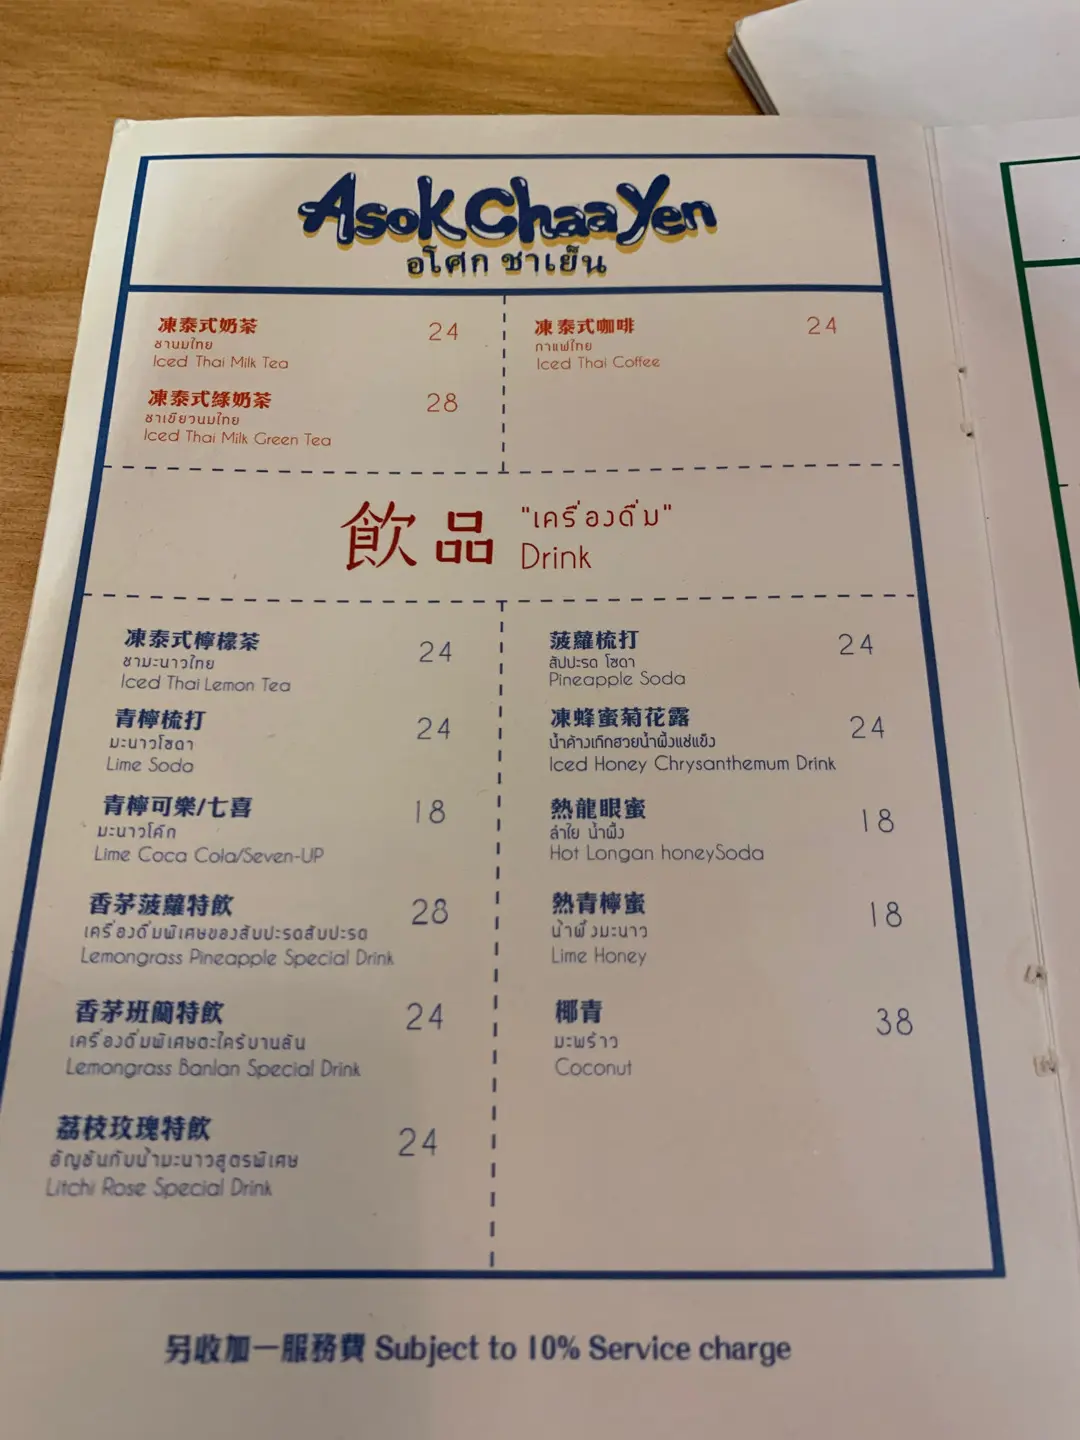 Asok Chaa Yen
อโศก ชาเย็น
凍泰式奶茶 24
ชานมไทย
Iced Thai Milk Tea
凍泰式綠奶茶 28
ชาเขียวนมไทย
Iced Thai Milk Green Tea
凍泰式咖啡 24
กาแฟไทย
Iced Thai Coffee
飲品 "เครื่องดื่ม"
Drink
凍泰式檸檬茶 24
ชามะนาวไทย
Iced Thai Lemon Tea
青檸梳打 24
มะนาวโซดา
Lime Soda
青檸可樂/七喜 18
มะนาวโค๊ก
Lime Coca Cola/Seven-UP
香茅菠蘿特飲 28
เครื่องดื่มพิเศษของสับปะรดสับปะรด
Lemongrass Pineapple Special Drink
香茅班蘭特飲 24
เครื่องดื่มพิเศษตะไคร้บานลัน
Lemongrass Banlan Special Drink
荔枝玫瑰特飲 24
อัญชันกับน้ำมะนาวสูตรพิเศษ
Litchi Rose Special Drink
菠蘿梳打 24
สัปปะรด โซดา
Pineapple Soda
凍蜂蜜菊花露 24
น้ำค้างเก๊กฮวยน้ำผึ้งแช่แข็ง
Iced Honey Chrysanthemum Drink
熱龍眼蜜 18
ลำไย น้ำผึ้ง
Hot Longan honeySoda
熱青檸蜜 18
น้ำผึ้งมะนาว
Lime Honey
椰青 38
มะพร้าว
Coconut
另收加一服務費 Subject to 10% Service charge